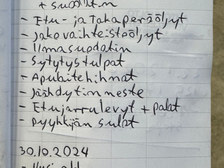 + suodatin
- Etu- ja takaperäöljyt
- jakovaihteistoöljyt
- Ilmasuodatin
- Sytytystulpat
- Apulaitehihnat
- Jäähdytinneste
- Etujarrulevyt + palat
- pyyhkijän sulat
30.10.2024